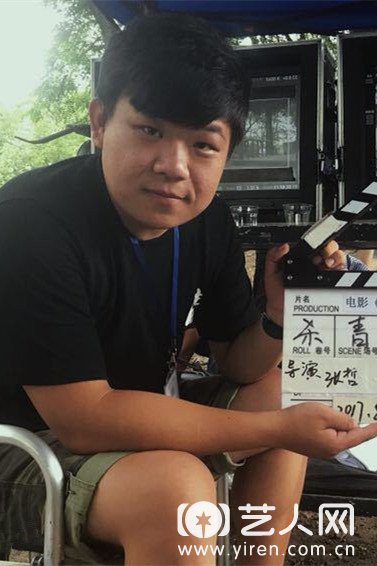 片名
PRODUCTION
电影《
杀青
ROLL 卷号
SCENE 场号
导演 张哲
2017.
艺人网
www.yiren.com.cn